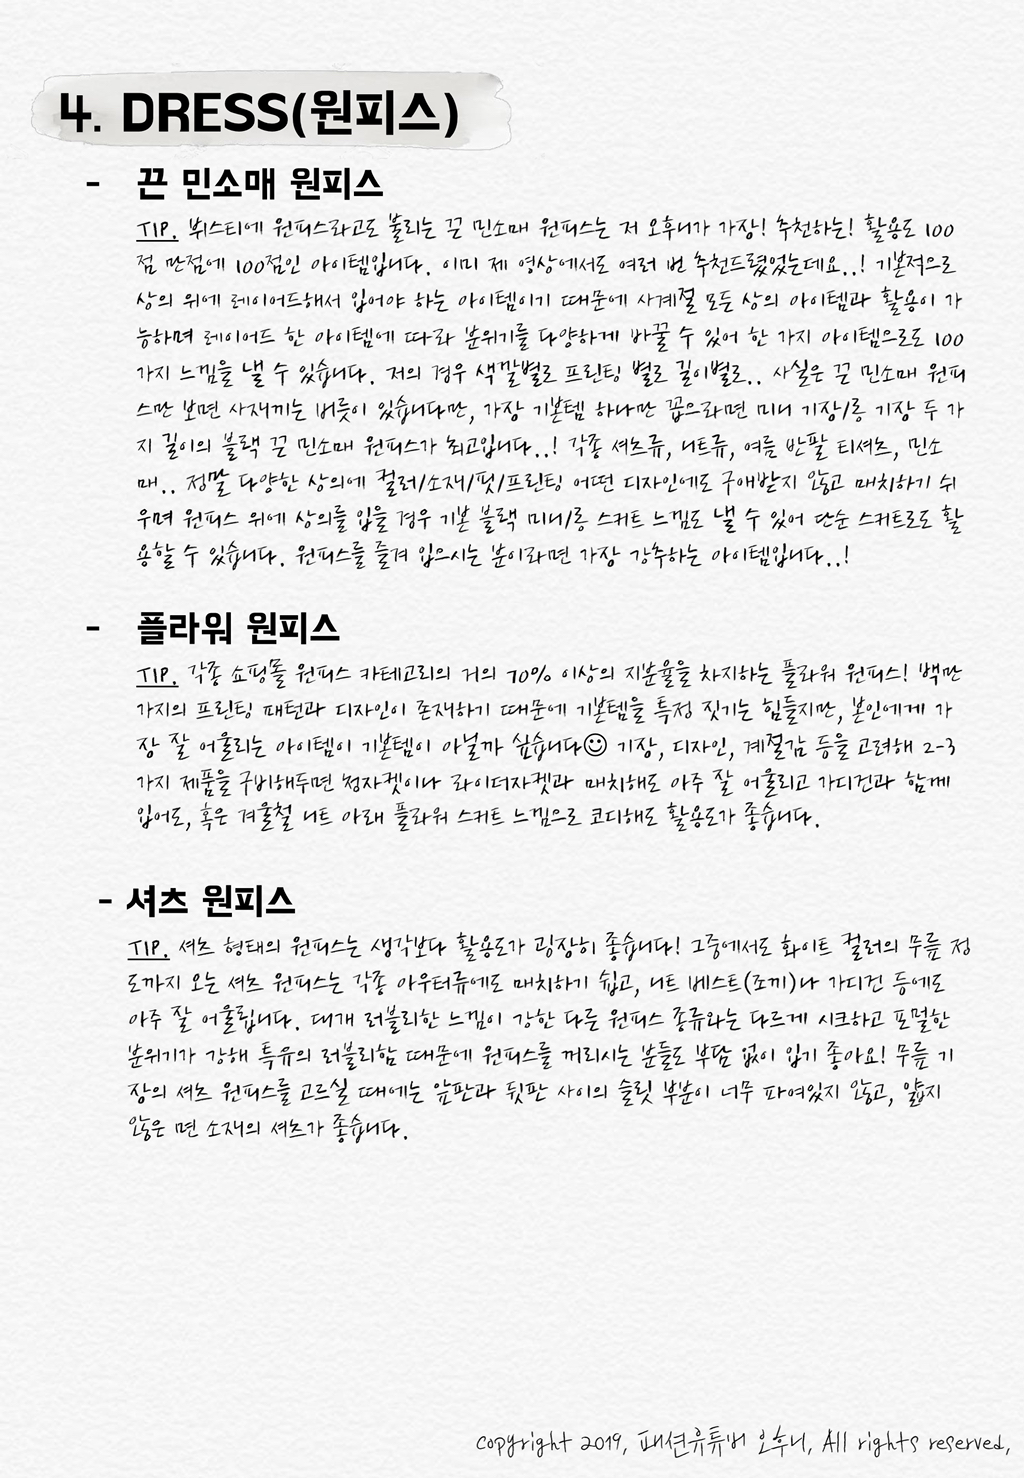 4. DRESS(원피스)
- 끈 민소매 원피스
TIP. 뷔스티에 원피스라고도 불리는 끈 민소매 원피스는 저 오후니가 가장! 추천하는! 활용도 100
점 만점에 100점인 아이템입니다. 이미 제 영상에서도 여러 번 추천드렸었는데요..! 기본적으로
상의 위에 레이어드해서 입어야 하는 아이템이기 때문에 사계절 모든 상의 아이템과 활용이 가
능하며 레이어드 한 아이템에 따라 분위기를 다양하게 바꿀 수 있어 한 가지 아이템으로도 100
가지 느낌을 낼 수 있습니다. 저의 경우 색깔별로 프린팅 별로 길이별로.. 사실은 끈 민소매 원피
스만 보면 사재끼는 버릇이 있습니다만, 가장 기본템 하나만 꼽으라면 미니 기장/롱 기장 두 가
지 길이의 블랙 끈 민소매 원피스가 최고입니다..! 각종 셔츠류, 니트류, 여름 반팔 티셔츠, 민소
매.. 정말 다양한 상의에 컬러/소재/핏/프린팅 어떤 디자인에도 구애받지 않고 매치하기 쉬
우며 원피스 위에 상의를 입을 경우 기본 블랙 미니/롱 스커트 느낌도 낼 수 있어 단순 스커트로도 활
용할 수 있습니다. 원피스를 즐겨 입으시는 분이라면 가장 강추하는 아이템입니다..!
- 플라워 원피스
TIP. 각종 쇼핑몰 원피스 카테고리의 거의 70% 이상의 지분율을 차지하는 플라워 원피스! 백만
가지의 프린팅 패턴과 디자인이 존재하기 때문에 기본템을 특정 짓기는 힘들지만, 본인에게 가
장 잘 어울리는 아이템이 기본템이 아닐까 싶습니다☺ 기장, 디자인, 계절감 등을 고려해 2-3
가지 제품을 구비해두면 청자켓이나 라이더자켓과 매치해도 아주 잘 어울리고 가디건과 함께
입어도, 혹은 겨울철 니트 아래 플라워 스커트 느낌으로 코디해도 활용도가 좋습니다.
- 셔츠 원피스
TIP. 셔츠 형태의 원피스는 생각보다 활용도가 굉장히 좋습니다! 그중에서도 화이트 컬러의 무릎 정
도까지 오는 셔츠 원피스는 각종 아우터류에도 매치하기 쉽고, 니트 베스트(조끼)나 가디건 등에도
아주 잘 어울립니다. 대개 러블리한 느낌이 강한 다른 원피스 종류와는 다르게 시크하고 포멀한
분위기가 강해 특유의 러블리함 때문에 원피스를 꺼리시는 분들도 부담 없이 입기 좋아요! 무릎 기
장의 셔츠 원피스를 고르실 때에는 앞판과 뒷판 사이의 슬릿 부분이 너무 파여있지 않고, 얇지
않은 면 소재의 셔츠가 좋습니다.
copyright 2019, 패션유튜버 오후니, All rights reserved,